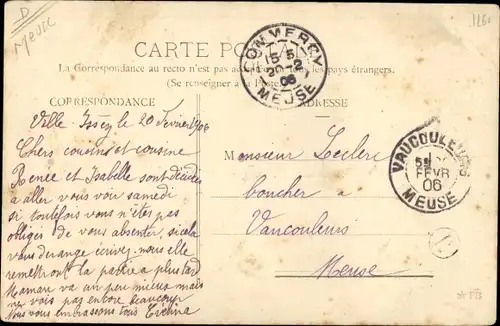 D
Meuse
1160
CARTE POSTALE
La Correspondance au recto n'est pas acceptée par tous les pays étrangers.
(Se renseigner à la Poste)
COMMERCY
15-5
20-2
06
MEUSE
CORRESPONDANCE
ADRESSE
Ville-Issey le 20 Fevrier 1906
Chers cousins et cousine
Renee et Isabelle sont décidées
a aller vous voir samedi
si toutefois vous n'etes pas
obligés de vous absenter, si cela
vous derange écrivez-nous elle
remettront la partie a plus tard
Maman va un peu mieux mais
ne vois pas encore beaucoup
Nous vous embrassons tous Evelina
Monsieur Leclerc
boucher à
Vaucouleurs
Meuse
VAUCOULEURS
FEVR
06
MEUSE